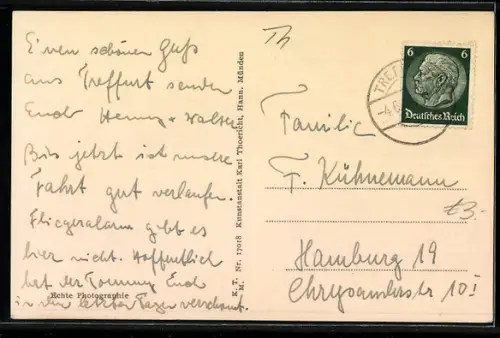 Einen schönen Gruß
aus Treffurt senden
Euch Henny + Walter
Bis jetzt ist unsere
Fahrt gut verlaufen.
Fliegeralarm gibt es
hier nicht. Hoffentlich
hat der Tommy Euch
in den letzten Tagen verschont.
Echte Photographie
K. T. Nr. 17018 Kunstanstalt Karl Thoericht, Hann. Münden
M.
Th
TREFF
-4.6
6 6
Deutsches Reich
Familie
F. Kühnemann
£3.-
Hamburg 19
Chrysanderstr 10 I